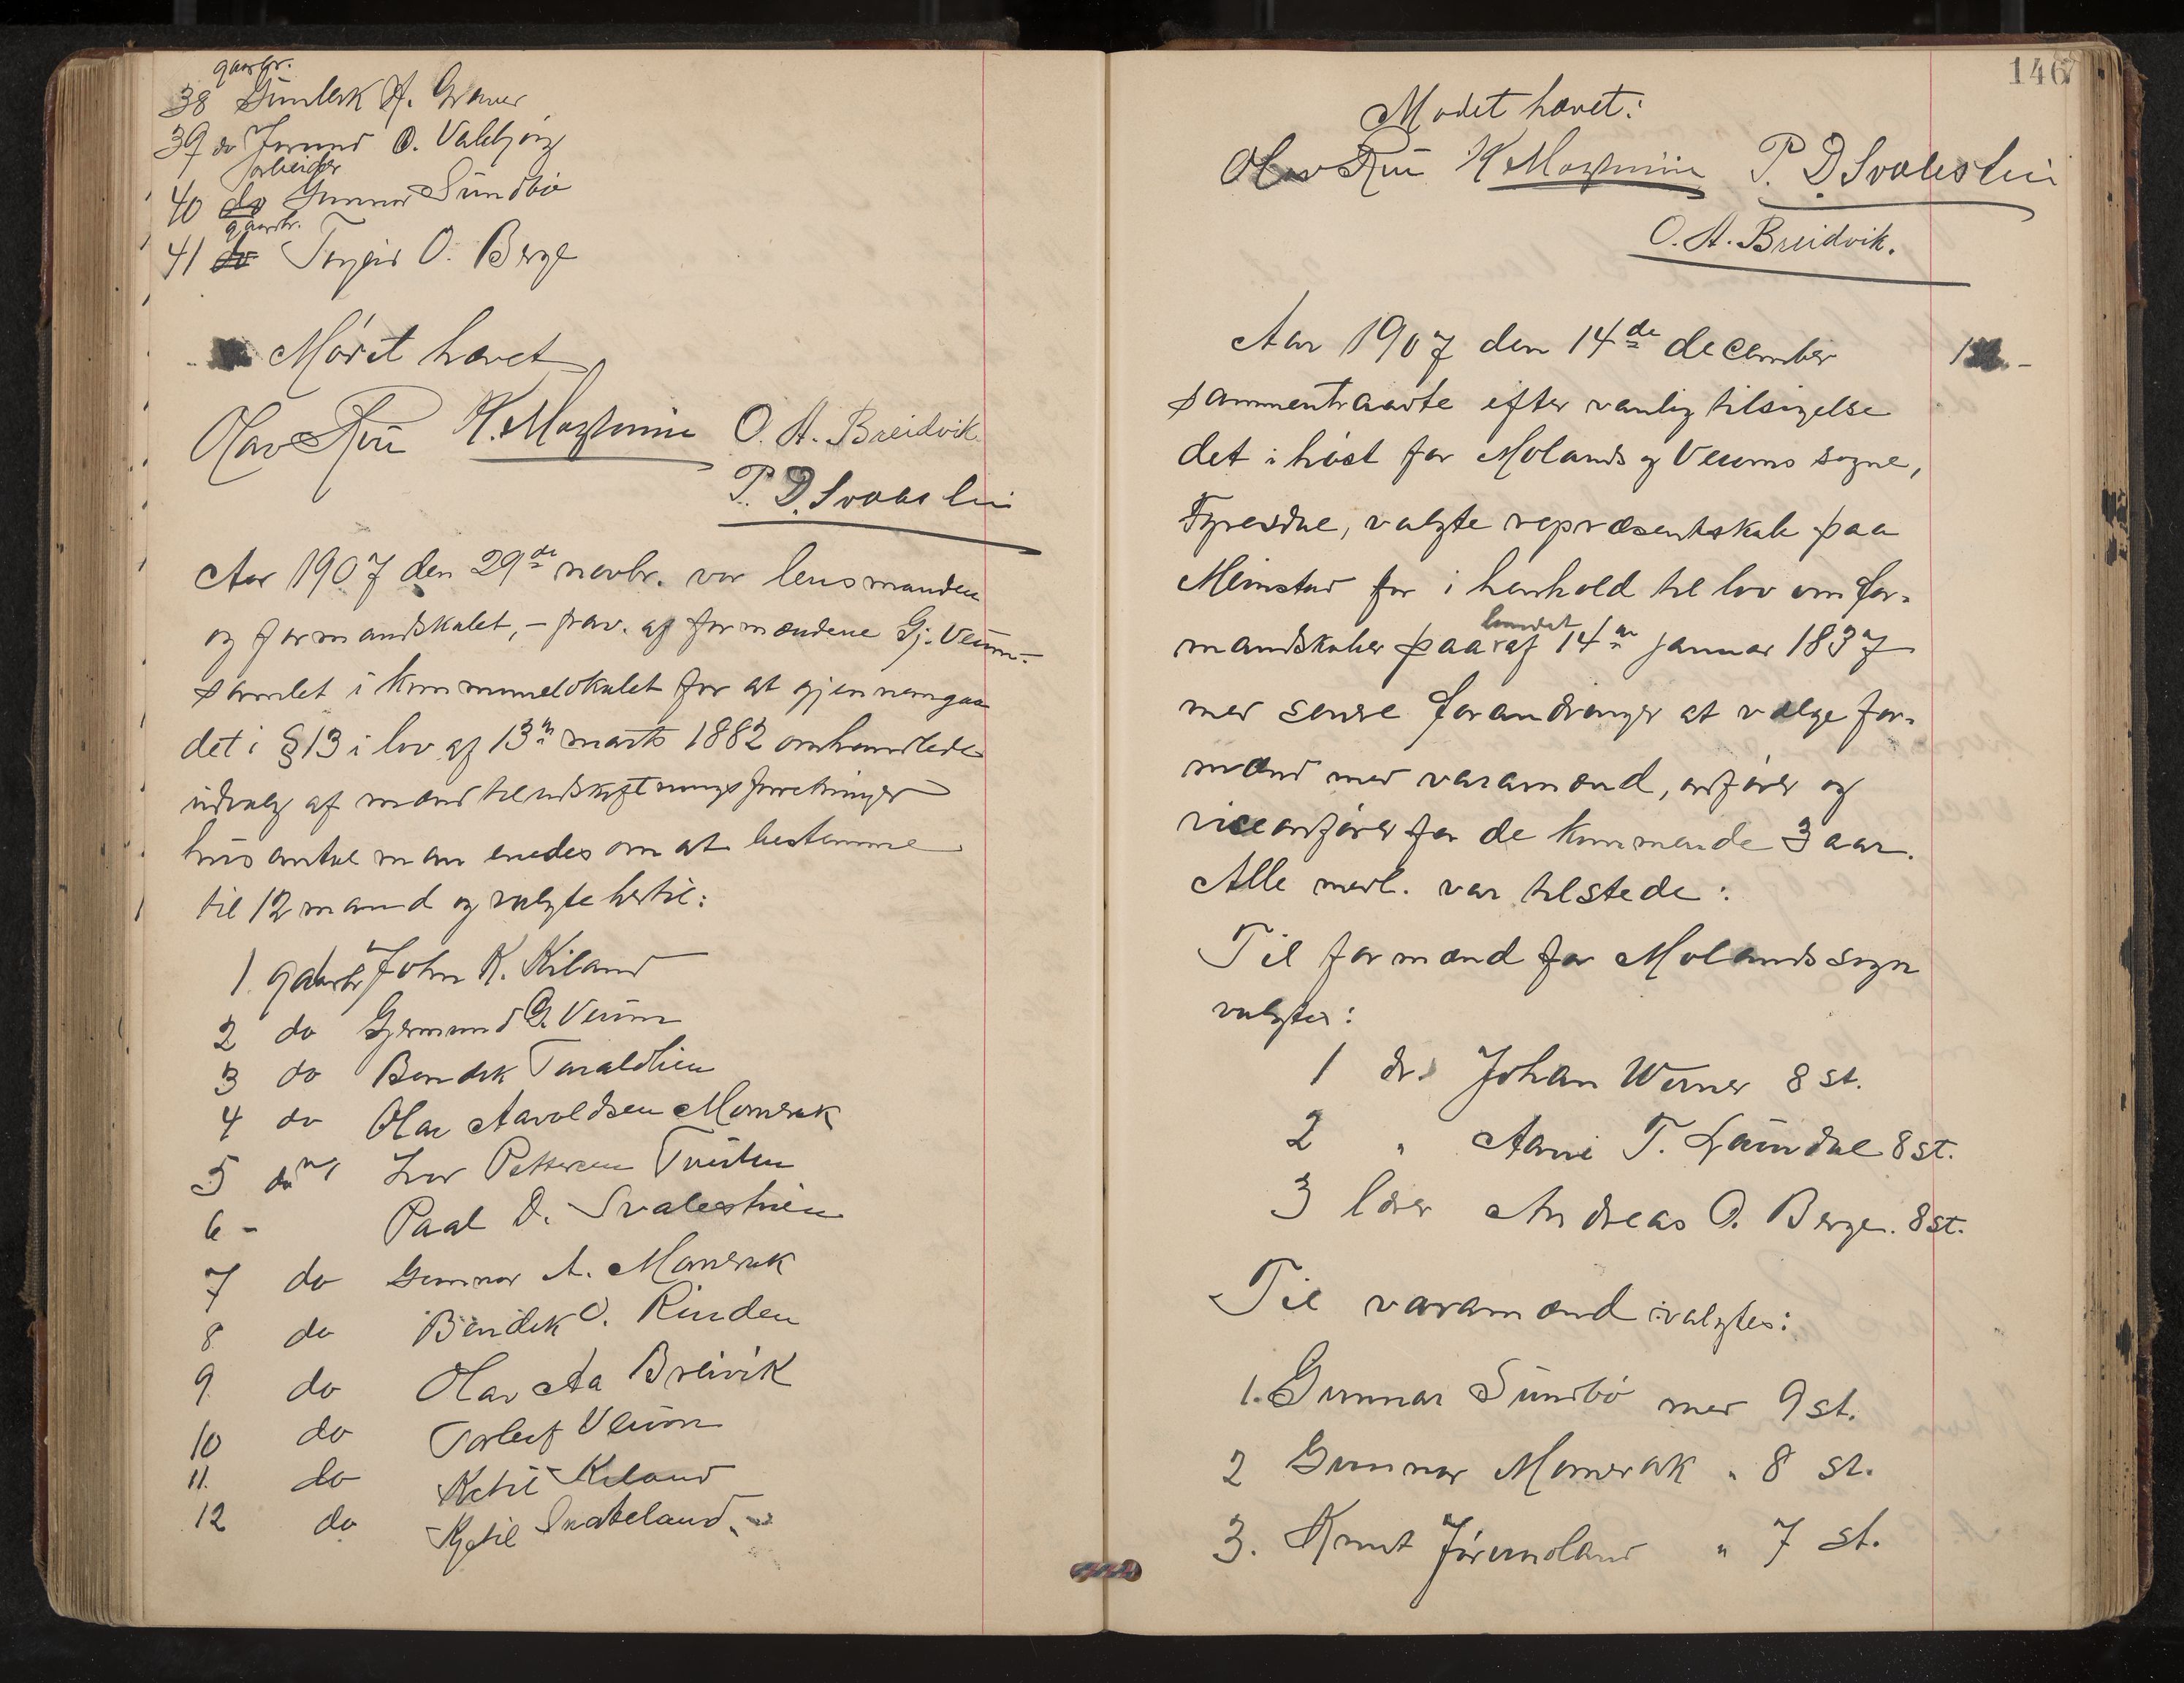 gaarbr.
38 Gunlerk H. Graver
39 do Jorund O. Valebjörg
arbeider
40 do Gunnar Sundbö
gaardbr.
41 do Torgeir O. Berge
Mödet hævet
Olav Rui K. Moghunin O. A. Breidvik
P. D. Svalestuin
Aar 1907 den 29de novbr. var lensmanden
og formandskabet, – frav. af formændene Gj. Veum –
samlet i kommunelokalet for at gjennemgaa
det i § 13 i lov af 13de marts 1882 omhandlede
udvalg af mænd til udskiftningsforretninger
hvis antal man enedes om at bestemme
til 12 mand og valgte hertil:
1. gaardbr John K. Kiland
2 do Gjermund G. Veum
3 do Bendik Taraldlien
4 do Olav Aavoldsen Momrak
5 do Ivar Pettersen Tveiten
6 – Paal D. Svalestuien
7 do Gunnar A. Momrak
8 do Bendik O. Rinden
9. do Olav Aa Breivik
10 do Torleif Veum
11. do Ketil Kiland
12 do Kjetil Snateland.
146
Mødet hævet:
Olav Rui K Moghunin P. D Svalestuin
O. A. Breidvik.
Aar 1907 den 14de december
sammentraadte efter vanlig tilsigelse
det i høst for Molands og Veums sogne,
Fyresdal, valgte repræsentskab paa
Meinstad for i henhold til lov om for-
landet
mandskaber paa af 14de januar 1837
med senere forandringer at vælge for-
mænd med varamænd, ordfører og
viceordfører for de kommende 3 aar.
Alle medl. var tilstede:
Til formænd for Molands sogn
valgtes:
1 dr. Johan Werner 8 st.
2 " Aanie T. Laundal 8 st.
3 lærer Andreas O. Berge. 8 st.
Til varamænd valgtes:
1. Gunnar Sundbö med 9 st.
2 Gunnar Momrak " 8 st.
3. Knut Jörundland " 7 st.